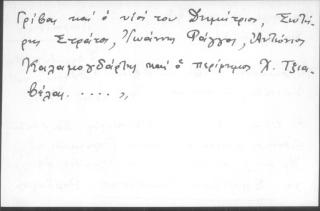 Γρίβας καὶ ὁ υἱός του Δημήτριος, Σωτή-
ρης Στράτος, Ἰωάννης Ράγγος, Ἀντώνιος
Καλαμογδάρτης καὶ ὁ περίφημος Χ. Τζια-
βέλας. .... "